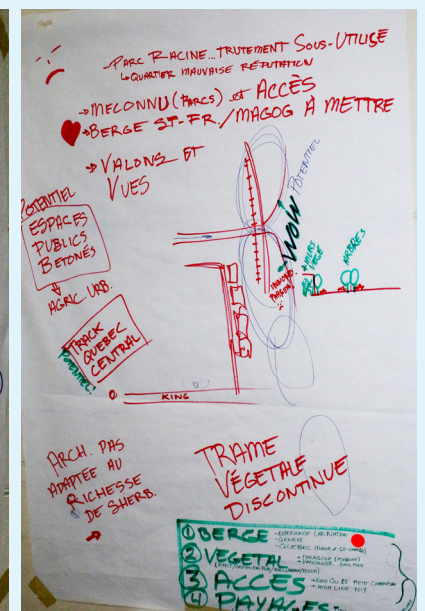 - PARC RACINE...TRUTEMENT SOUS-UTILISÉ
↳ QUARTIER MAUVAISE RÉPUTATION
→ MECONNU (PARCS) et ACCÈS
→ BERGE ST-FR./MAGOG À METTRE
→ VALONS ET
VUES
POTENTIEL
WOW
POTENTIEL
ESPACES
PUBLICS
BETONÉS
AGRIC. URB.
+ MURS
VÉGÉ
ARBRES
TRACK
QUEBEC
CENTRAL
POTENTIEL!
KING
ARCH. PAS
ADAPTÉE AU
RICHESSE
DE SHERB.
TRAME
VÉGÉTALE
DISCONTINUE
① BERGE
- GENEVE
② VÉGÉTAL
③ ACCÈS
④ PAYAGE-